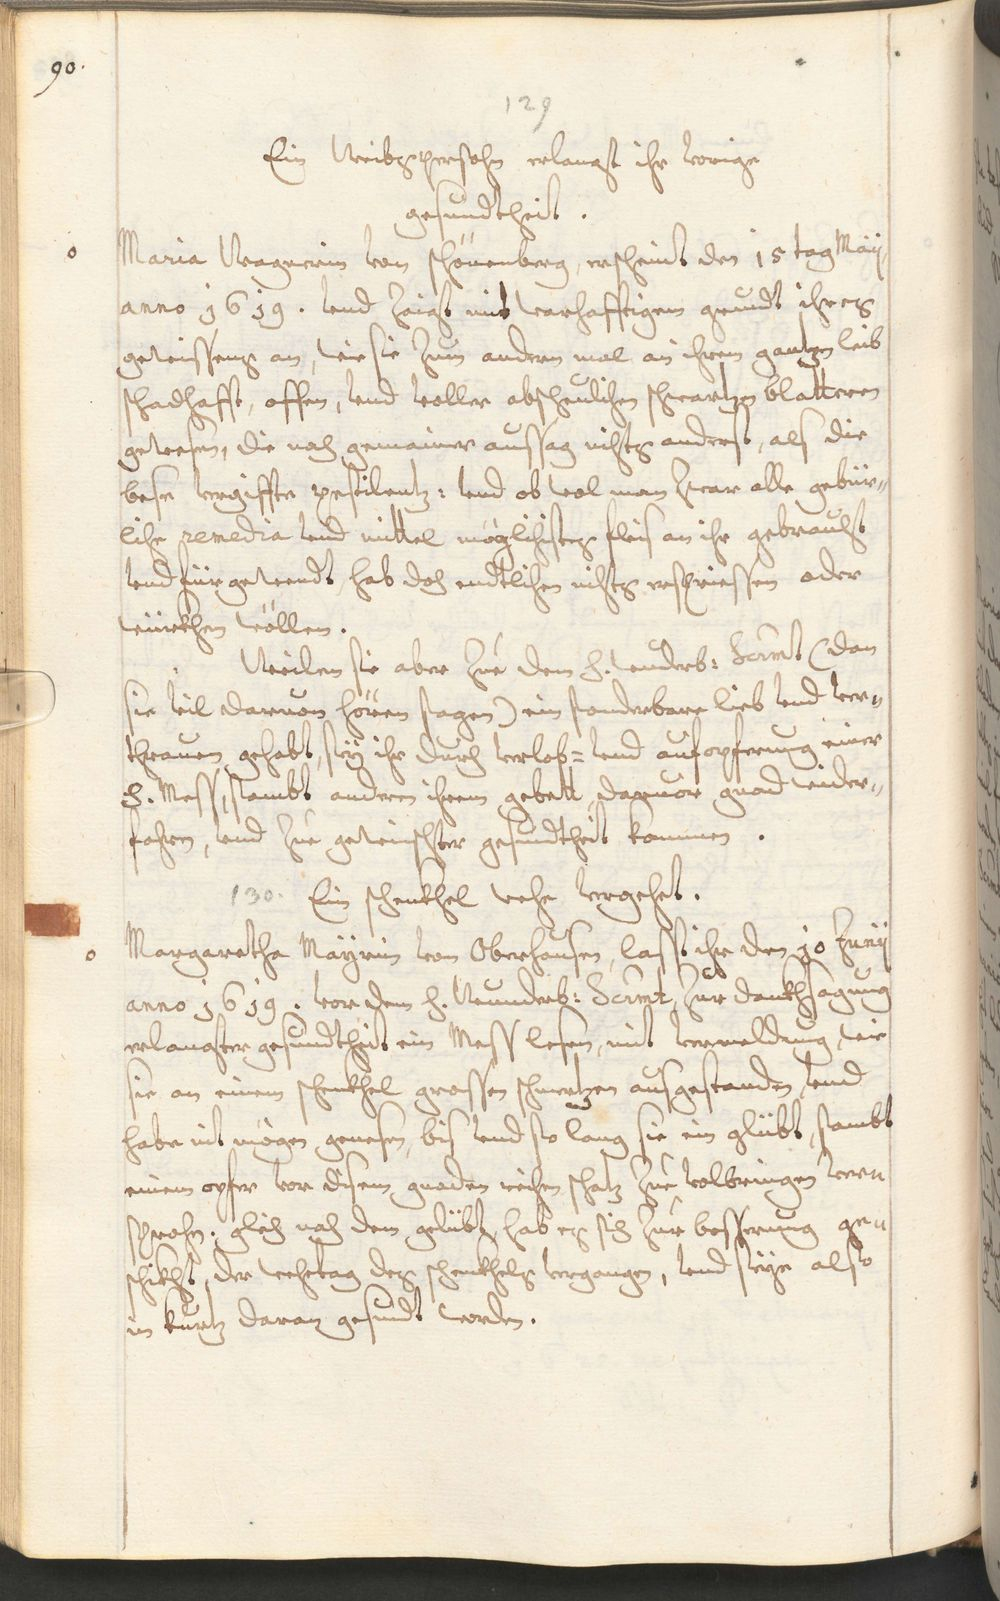 90.
129
Ein Weibspersohn erlangt ihr vorige
gesundtheit.
Maria Wagnerin von Schönenberg, erscheint den 15 tag Maÿ
anno 1619. vnd zaigt mit warhafftigem grundt ihres
gewissens an, wie sie zum andern mal an ihrem gantzen leib
schadhafft, offen, vnd voller abscheulichen schwartzen blatteren
gewesen, die nach gemainer aussag nichts anderst, als die
bese vergiffte pestilentz: vnd ob wol man zwar alle gebür„
liche remedia vnd mittel möglichstes fleis an ihr gebraucht
vnd fürgewendt, hab doch endtlichen nichts erspriessen oder
würckhen wöllen.
Weilen sie aber zue dem h. wunderb: Sacrmt (dan
sie vil daruon hören sagen) ein sonderbare lieb vnd ver„
thrawen gehabt, seÿ ihr durch verlob= vnd aufopferung einer
h. Mess, sambt anderen ihrem gebett, daruor gnad wider„
fahren, vnd zue gewinschter gesundtheit kommen.
130. Ein schenkhel wehe vergehet.
Margaretha Maÿrin von Oberhausen, lasst ihr den 10 Junÿ
anno 1619. vor dem h. Wunderb: Sacrmt, zur danckhsagung
erlangter gesundtheit ein Mess lesen, mit vermeldung, wie
sie an einem schenkhel grossen schmertzen ausgestanden, vnd
habe nit mögen genesen, bis vnd so lang sie ein glübt, sambt
einem opfer vor disem gnadenreichen schatz zue volbringen ver„
sprochen. gleich nach dem gelübt, hab es sich zur besserung ge„
schikht, der wehetag des schenkhels vergangen, vnd seÿe also
in kurtz daran gesundt worden.